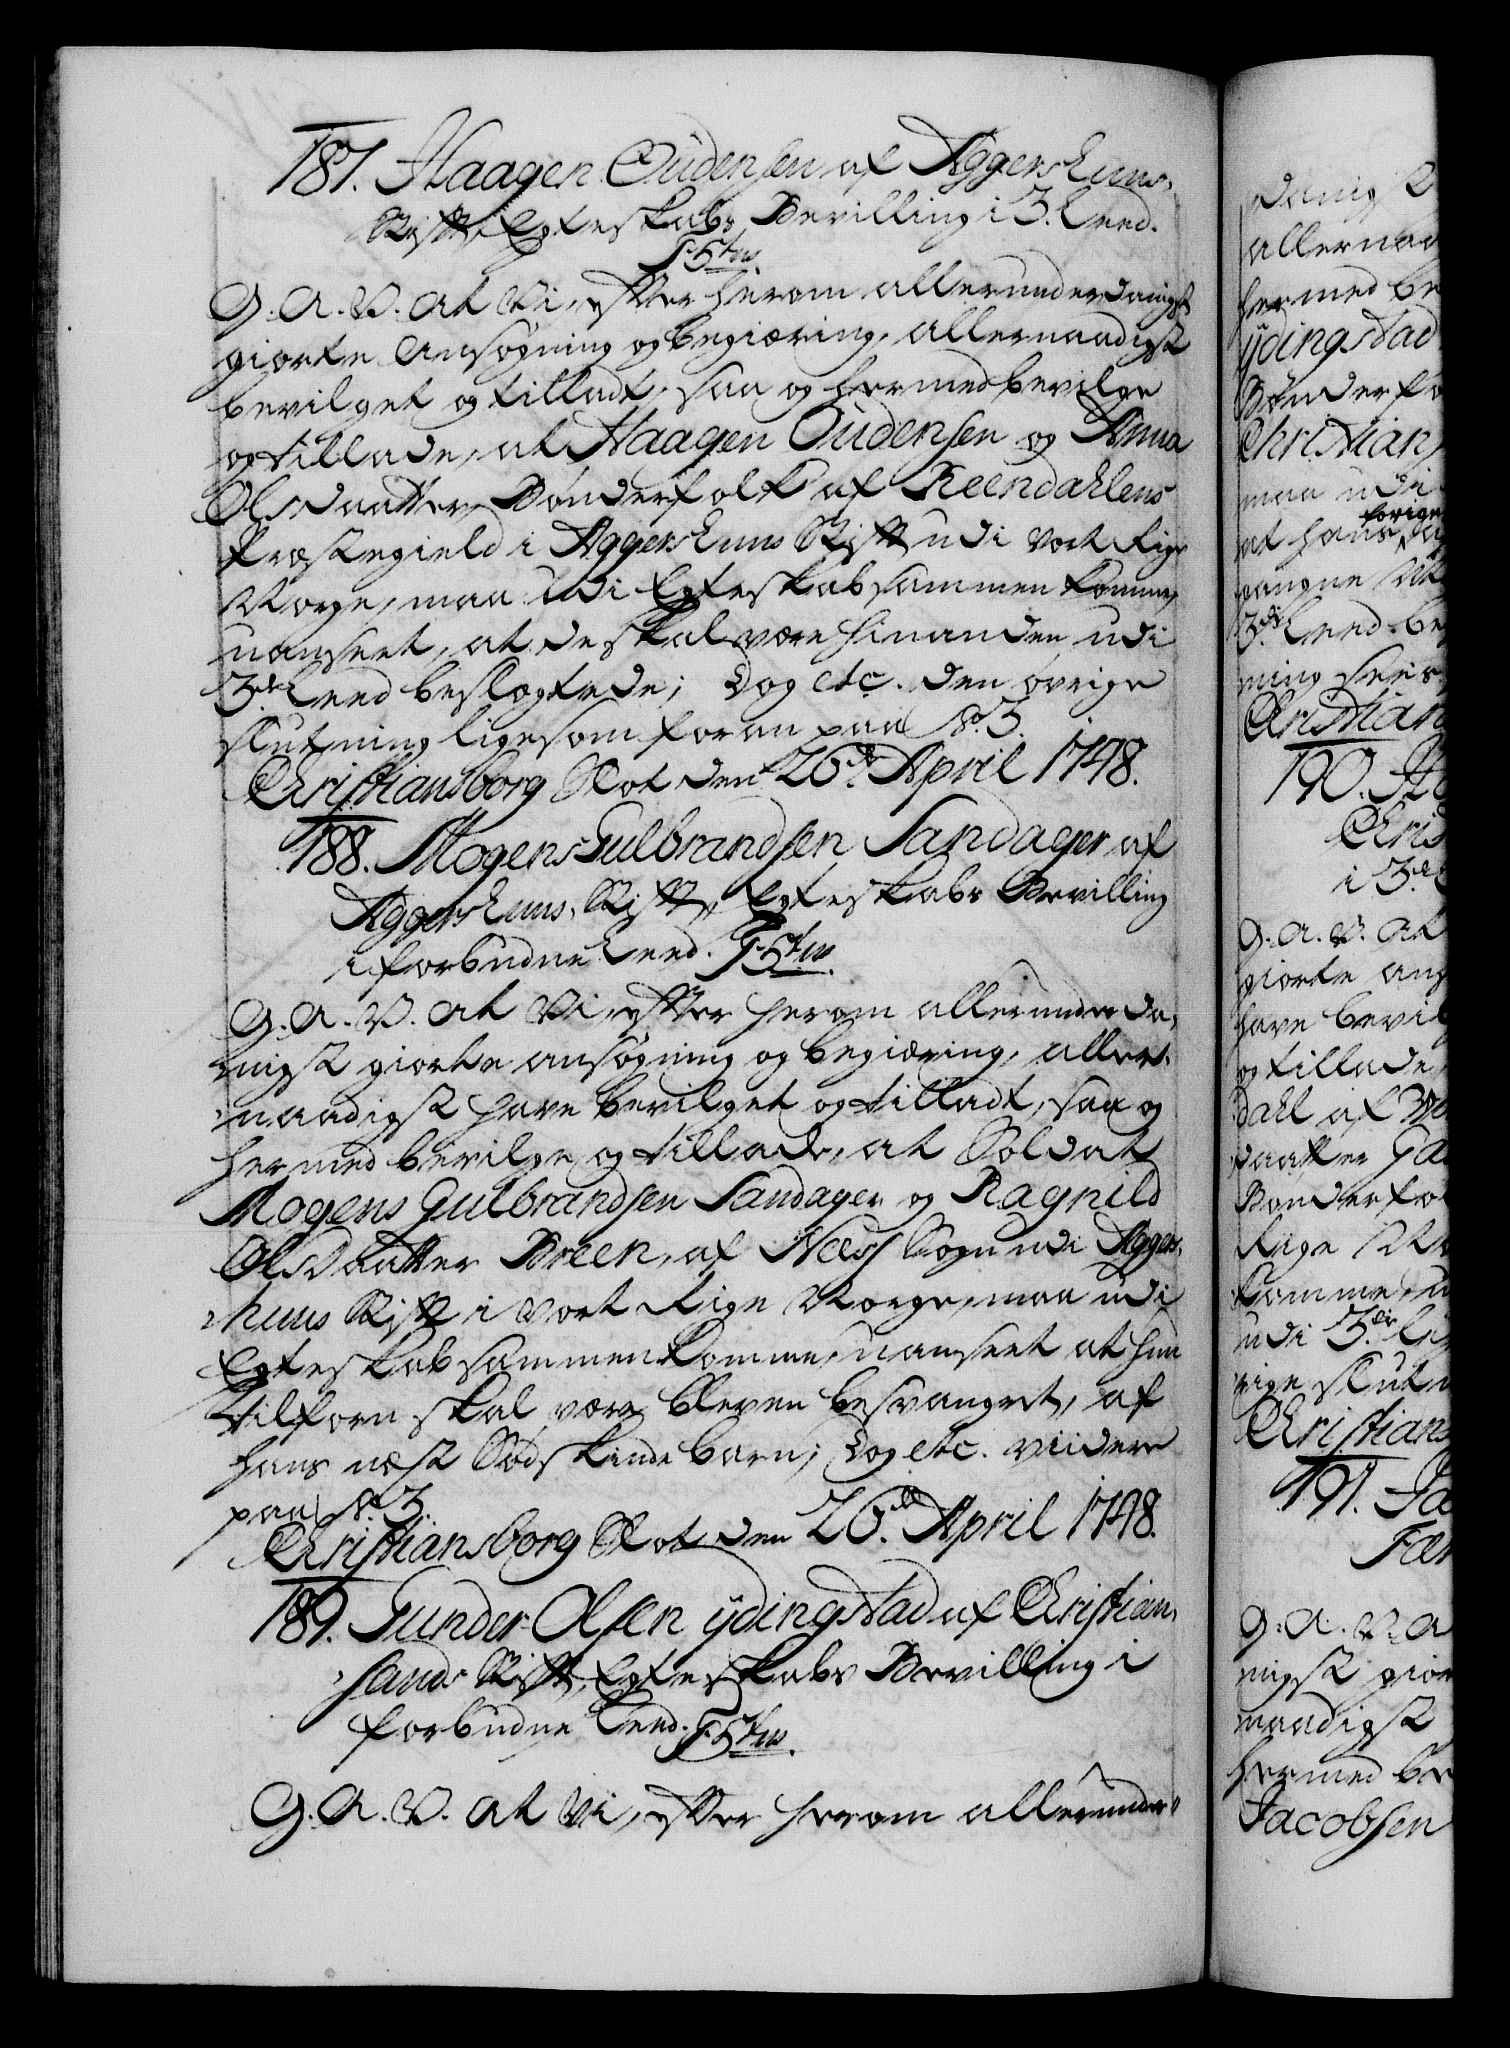 187. Haagen Oudensen af Aggershuus,
Stift, Egteskabs Bevilling i 3. Leed.
G. A. V. at Vi, efter herom allerunderdanigst
giorte Ansøgning og begiæring, allernaadigst
bevilget og tilladt, saa og hermed bevilge
og tillade, at Haagen Oudensen og Anna
Olsdaatter, Bønderfolk af Reendahlens
Præstegield i Aggershuus Stift udi vort Rige
Norge, maa udi Egteskab sammen komme,
uanseet, at de skal være hinanden udi
3die Leed beslægtede; Dog etc. den øvrige
slutning ligesom foran paa No. 3.
Christiansborg Slot den 26de April 1748.
188. Mogens Gulbrandsen Sandager af
Aggershuus, Stift, Egteskabs Bevilling
i forbudne Leed.
G. A. V. at Vi, efter herom allerunderda-
nigst giorte ansøgning og begiæring, aller-
naadigst have bevilget og tilladt, saa og
hermed bevilge og tillade, at Soldat
Mogens Gulbrandsen Sandager og Ragnild
Olsdaatter Breen, af Næss Sogn udi Aggers-
huus Stift i vort Rige Norge, maa udi
Egteskab sammen komme, uanseet at hun
tilforn skal være bleven besvangret, af
hans næst Sødskindebarn; Dog etc. viidere
paa No. 3.
Christiansborg Slot den 26de April 1748.
189. Gunder Olsen Ÿdingstad af Christian-
sands Stift, Egteskabs Bevilling i
forbudne Leed.
G. A. V. at Vi, efter herom allerunder-
danig
allernaa
hermed be
Ÿdingstad
Bønderfo
Christian
maa udi
at hans forige
gangne
3die Leed be
ning
Christian
190.
Chris
i 3die
G. A. V. at
giorte an
have bevil
og tillade,
dahl af
daatter
Bønderfo
Rige No
komme, u
udi 3die
rige slut
Christians
191. Ja
G. A. V. a
nigst gior
naadigst
hermed be
Jacobsen